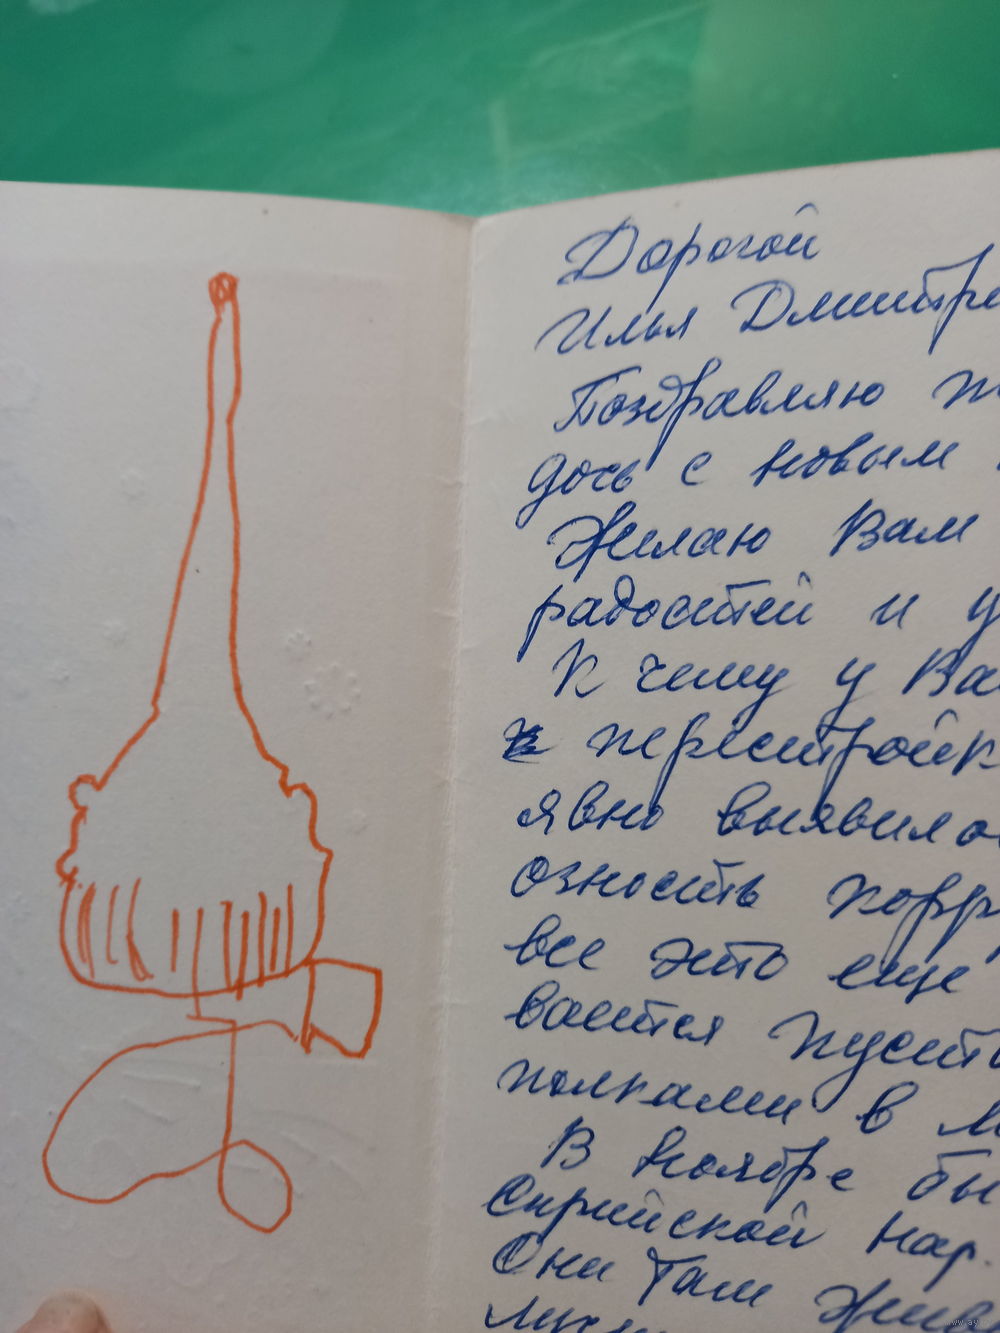 Дорогой
Илья Дмитре
Поздравляю
дочь с новым
Желаю Вам
радостей и у
К чему у Ва
перестройк
явно выявило
озность корр
все это еще
вается пуст
полками в м
В ноябре бы
Сирийской нар.
Они там жив
www.ay